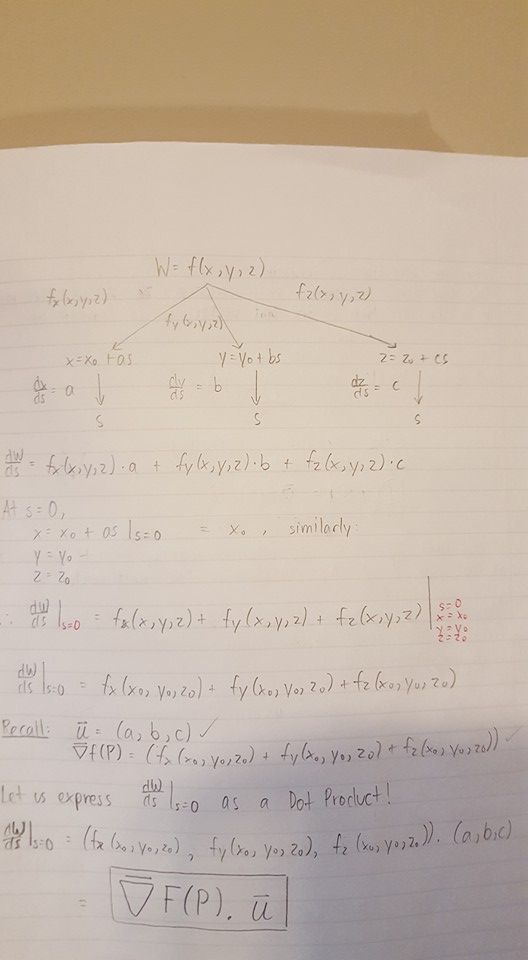 W = f(x,y,z)
fx(x,y,z)
fy(x,y,z)
fz(x,y,z)
x = x₀ + as
y = y₀ + bs
z = z₀ + cs
dx/ds = a
dy/ds = b
dz/ds = c
s
s
s
dW/ds = fx(x,y,z)·a + fy(x,y,z)·b + fz(x,y,z)·c
At s=0,
x = x₀ + as |s=0 = x₀, similarly
y = y₀
z = z₀
∴ dW/ds |s=0 = fx(x,y,z) + fy(x,y,z) + fz(x,y,z) |
s=0
x = x₀
y = y₀
z = z₀
dW/ds |s=0 = fx(x₀,y₀,z₀) + fy(x₀,y₀,z₀) + fz(x₀,y₀,z₀)
Recall: ū = (a,b,c) ✓
∇̄f(P) = (fx(x₀,y₀,z₀) + fy(x₀,y₀,z₀) + fz(x₀,y₀,z₀)) ✓
Let us express dW/ds |s=0 as a Dot Product!
dW/ds |s=0 = (fx(x₀,y₀,z₀), fy(x₀,y₀,z₀), fz(x₀,y₀,z₀)). (a,b,c)
= ∇̄F(P). ū